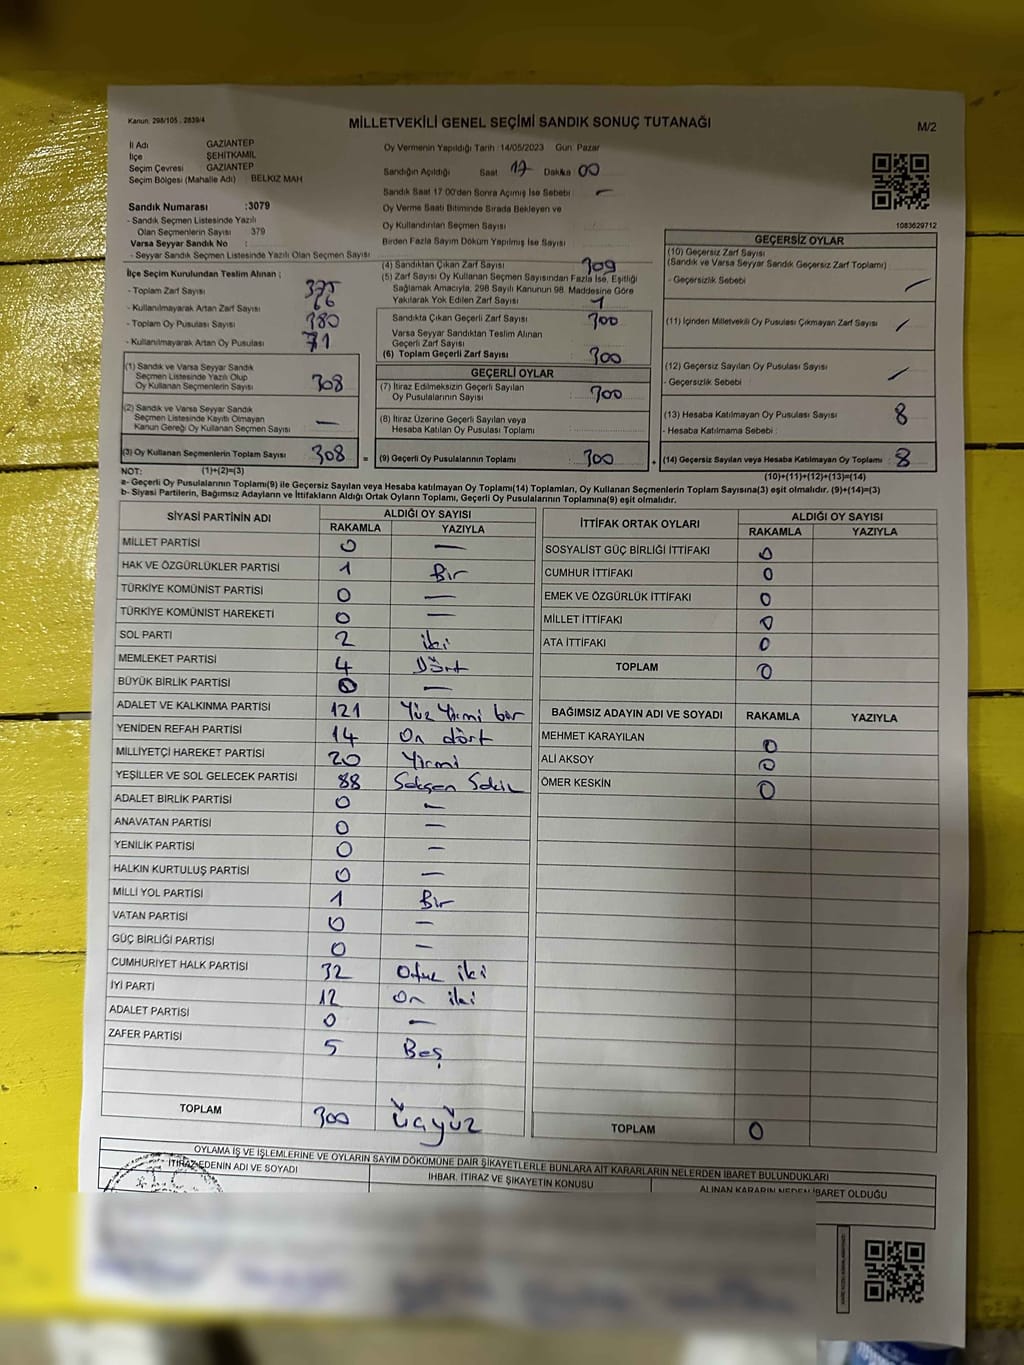 Kanun. 298/105 , 2839/4
MİLLETVEKİLİ GENEL SEÇİMİ SANDIK SONUÇ TUTANAĞI
M/2
İl Adı GAZİANTEP
İlçe ŞEHİTKAMİL
Seçim Çevresi GAZİANTEP
Seçim Bölgesi (Mahalle Adı) : BELKIZ MAH
Sandık Numarası :3079
- Sandık Seçmen Listesinde Yazılı
Olan Seçmenlerin Sayısı 379
Varsa Seyyar Sandık No :
- Seyyar Sandık Seçmen Listesinde Yazılı Olan Seçmen Sayısı
Oy Vermenin Yapıldığı Tarih : 14/05/2023 Gün: Pazar
Sandığın Açıldığı Saat 17 Dakika 00
Sandık Saat 17:00'den Sonra Açımış İse Sebebi : —
Oy Verme Saati Bitiminde Sırada Bekleyen ve
Oy Kullandırılan Seçmen Sayısı :
Birden Fazla Sayım Döküm Yapılmış İse Sayısı :
1083629712
İlçe Seçim Kurulundan Teslim Alınan ;
- Toplam Zarf Sayısı : 375
- Kullanılmayarak Artan Zarf Sayısı : 66
- Toplam Oy Pusulası Sayısı : 380
- Kullanılmayarak Artan Oy Pusulası : 71
(1) Sandık ve Varsa Seyyar Sandık
Seçmen Listesinde Yazılı Olup
Oy Kullanan Seçmenlerin Sayısı : 308
(2) Sandık ve Varsa Seyyar Sandık
Seçmen Listesinde Kayıtlı Olmayan
Kanun Gereği Oy Kullanan Seçmen Sayısı : —
(3) Oy Kullanan Seçmenlerin Toplam Sayısı : 308 =
(4) Sandıktan Çıkan Zarf Sayısı : 309
(5) Zarf Sayısı Oy Kullanan Seçmen Sayısından Fazla İse, Eşitliği
Sağlamak Amacıyla, 298 Sayılı Kanunun 98. Maddesine Göre
Yakılarak Yok Edilen Zarf Sayısı : 1
Sandıkta Çıkan Geçerli Zarf Sayısı : 300
Varsa Seyyar Sandıktan Teslim Alınan
Geçerli Zarf Sayısı :
(6) Toplam Geçerli Zarf Sayısı : 300
GEÇERLİ OYLAR
(7) İtiraz Edilmeksizin Geçerli Sayılan
Oy Pusulalarının Sayısı : 300
(8) İtiraz Üzerine Geçerli Sayılan veya
Hesaba Katılan Oy Pusulası Toplamı :
(9) Geçerli Oy Pusulalarının Toplamı : 300 +
GEÇERSİZ OYLAR
(10) Geçersiz Zarf Sayısı
(Sandık ve Varsa Seyyar Sandık Geçersiz Zarf Toplamı) :
- Geçersizlik Sebebi :
(11) İçinden Milletvekili Oy Pusulası Çıkmayan Zarf Sayısı :
(12) Geçersiz Sayılan Oy Pusulası Sayısı :
- Geçersizlik Sebebi :
(13) Hesaba Katılmayan Oy Pusulası Sayısı : 8
- Hesaba Katılmama Sebebi :
(14) Geçersiz Sayılan veya Hesaba Katılmayan Oy Toplamı : 8
NOT: (1)+(2)=(3)
(10)+(11)+(12)+(13)=(14)
a- Geçerli Oy Pusulalarının Toplamı(9) ile Geçersiz Sayılan veya Hesaba katılmayan Oy Toplamı(14) Toplamları, Oy Kullanan Seçmenlerin Toplam Sayısına(3) eşit olmalıdır. (9)+(14)=(3)
b- Siyasi Partilerin, Bağımsız Adayların ve İttifakların Aldığı Ortak Oyların Toplamı, Geçerli Oy Pusulalarının Toplamına(9) eşit olmalıdır.
SİYASİ PARTİNİN ADI ALDIĞI OY SAYISI
RAKAMLA YAZIYLA
MİLLET PARTİSİ 0 —
HAK VE ÖZGÜRLÜKLER PARTİSİ 1 Bir
TÜRKİYE KOMÜNİST PARTİSİ 0 —
TÜRKİYE KOMÜNİST HAREKETİ 0 —
SOL PARTİ 2 iki
MEMLEKET PARTİSİ 4 Dört
BÜYÜK BİRLİK PARTİSİ 0 —
ADALET VE KALKINMA PARTİSİ 121 Yüz Yirmi bir
YENİDEN REFAH PARTİSİ 14 On dört
MİLLİYETÇİ HAREKET PARTİSİ 20 Yirmi
YEŞİLLER VE SOL GELECEK PARTİSİ 88 Seksen Sekiz
ADALET BİRLİK PARTİSİ 0 —
ANAVATAN PARTİSİ 0 —
YENİLİK PARTİSİ 0 —
HALKIN KURTULUŞ PARTİSİ 0 —
MİLLİ YOL PARTİSİ 1 Bir
VATAN PARTİSİ 0 —
GÜÇ BİRLİĞİ PARTİSİ 0 —
CUMHURİYET HALK PARTİSİ 32 Otuz iki
İYİ PARTİ 12 On iki
ADALET PARTİSİ 0 —
ZAFER PARTİSİ 5 Beş
TOPLAM 300 üçyüz
İTTİFAK ORTAK OYLARI ALDIĞI OY SAYISI
RAKAMLA YAZIYLA
SOSYALİST GÜÇ BİRLİĞİ İTTİFAKI 0
CUMHUR İTTİFAKI 0
EMEK VE ÖZGÜRLÜK İTTİFAKI 0
MİLLET İTTİFAKI 0
ATA İTTİFAKI 0
TOPLAM 0
BAĞIMSIZ ADAYIN ADI VE SOYADI RAKAMLA YAZIYLA
MEHMET KARAYILAN 0
ALİ AKSOY 0
ÖMER KESKİN 0
TOPLAM 0
OYLAMA İŞ VE İŞLEMLERİNE VE OYLARIN SAYIM DÖKÜMÜNE DAİR ŞİKAYETLERLE BUNLARA AİT KARARLARIN NELERDEN İBARET BULUNDUKLARI
İTİRAZ EDENİN ADI VE SOYADI
İHBAR, İTİRAZ VE ŞİKAYETİN KONUSU
ALINAN KARARIN NEDEN İBARET OLDUĞU